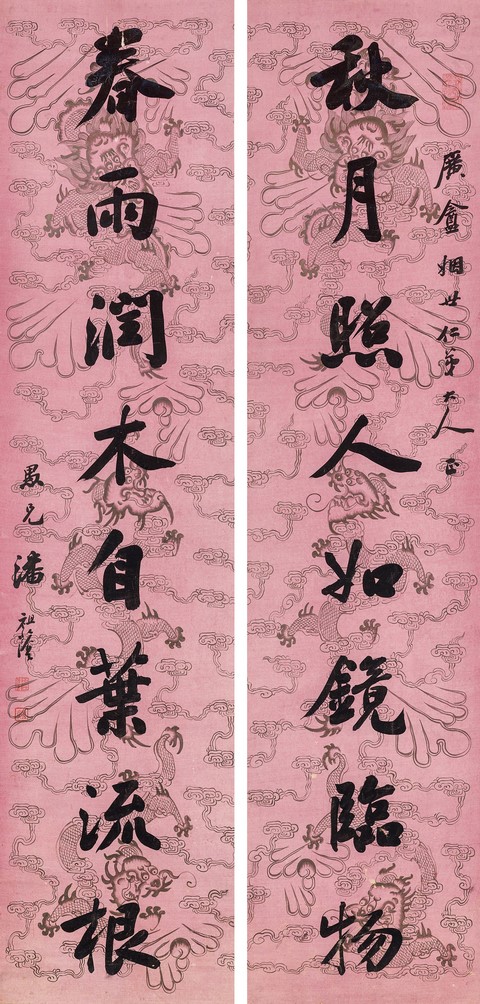 廣盦姻世仁弟大人正
秋月照人如鏡臨物
春雨潤木自葉流根
愚兄潘祖蔭